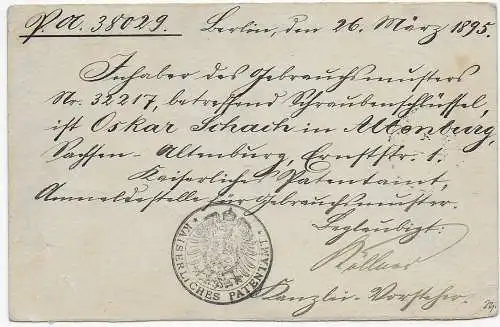 P. A. 38029. Berlin, den 26. März 1895.
Inhaber des Gebrauchsmusters
Nr. 32217, betreffend Schraubenschlüssel,
ist Oskar Schach in Altenburg,
Sachsen-Altenburg, Ernststr. 1.
Kaiserliches Patentamt,
Anmeldestelle für Gebrauchsmuster.
Beglaubigt:
Köllner
Kanzlei-Vorsteher.
* KAISERLICHES PATENTAMT. *